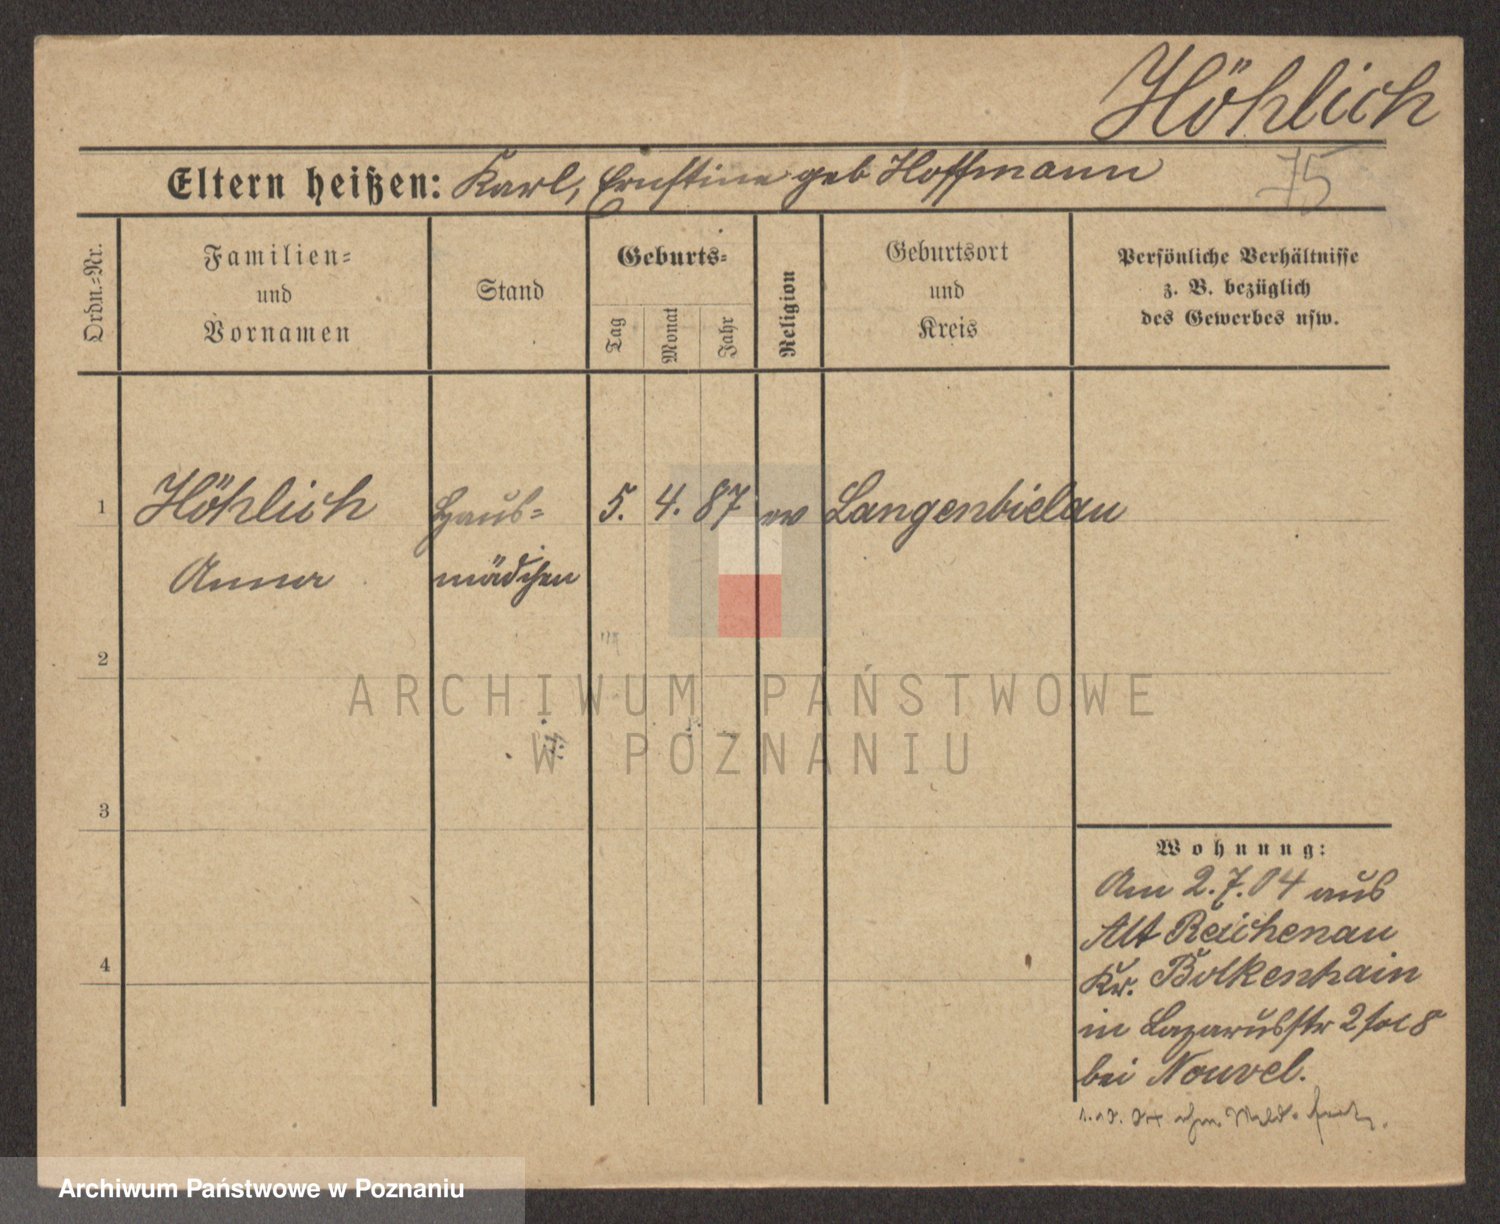 Höhlich
Eltern heißen: Karl, Ernstine geb Hoffmann
75
Ordn.-Nr.
Familien-
und
Vornamen
Stand
Geburts-
Tag
Monat
Jahr
Religion
Geburtsort
und
Kreis
Persönliche Verhältnisse
z. B. bezüglich
des Gewerbes usw.
1 Höhlich Haus- 5. 4. 87 ev Langenbielau
Anna mädchen
2
ARCHIWUM PAŃSTWOWE
W POZNANIU
3
Wohnung:
Am 2.7.04 aus
Alt Reichenau
4
Kr. Bolkenhain
in Lazarusstr 2
bei Nouvel.
Archiwum Państwowe w Poznaniu